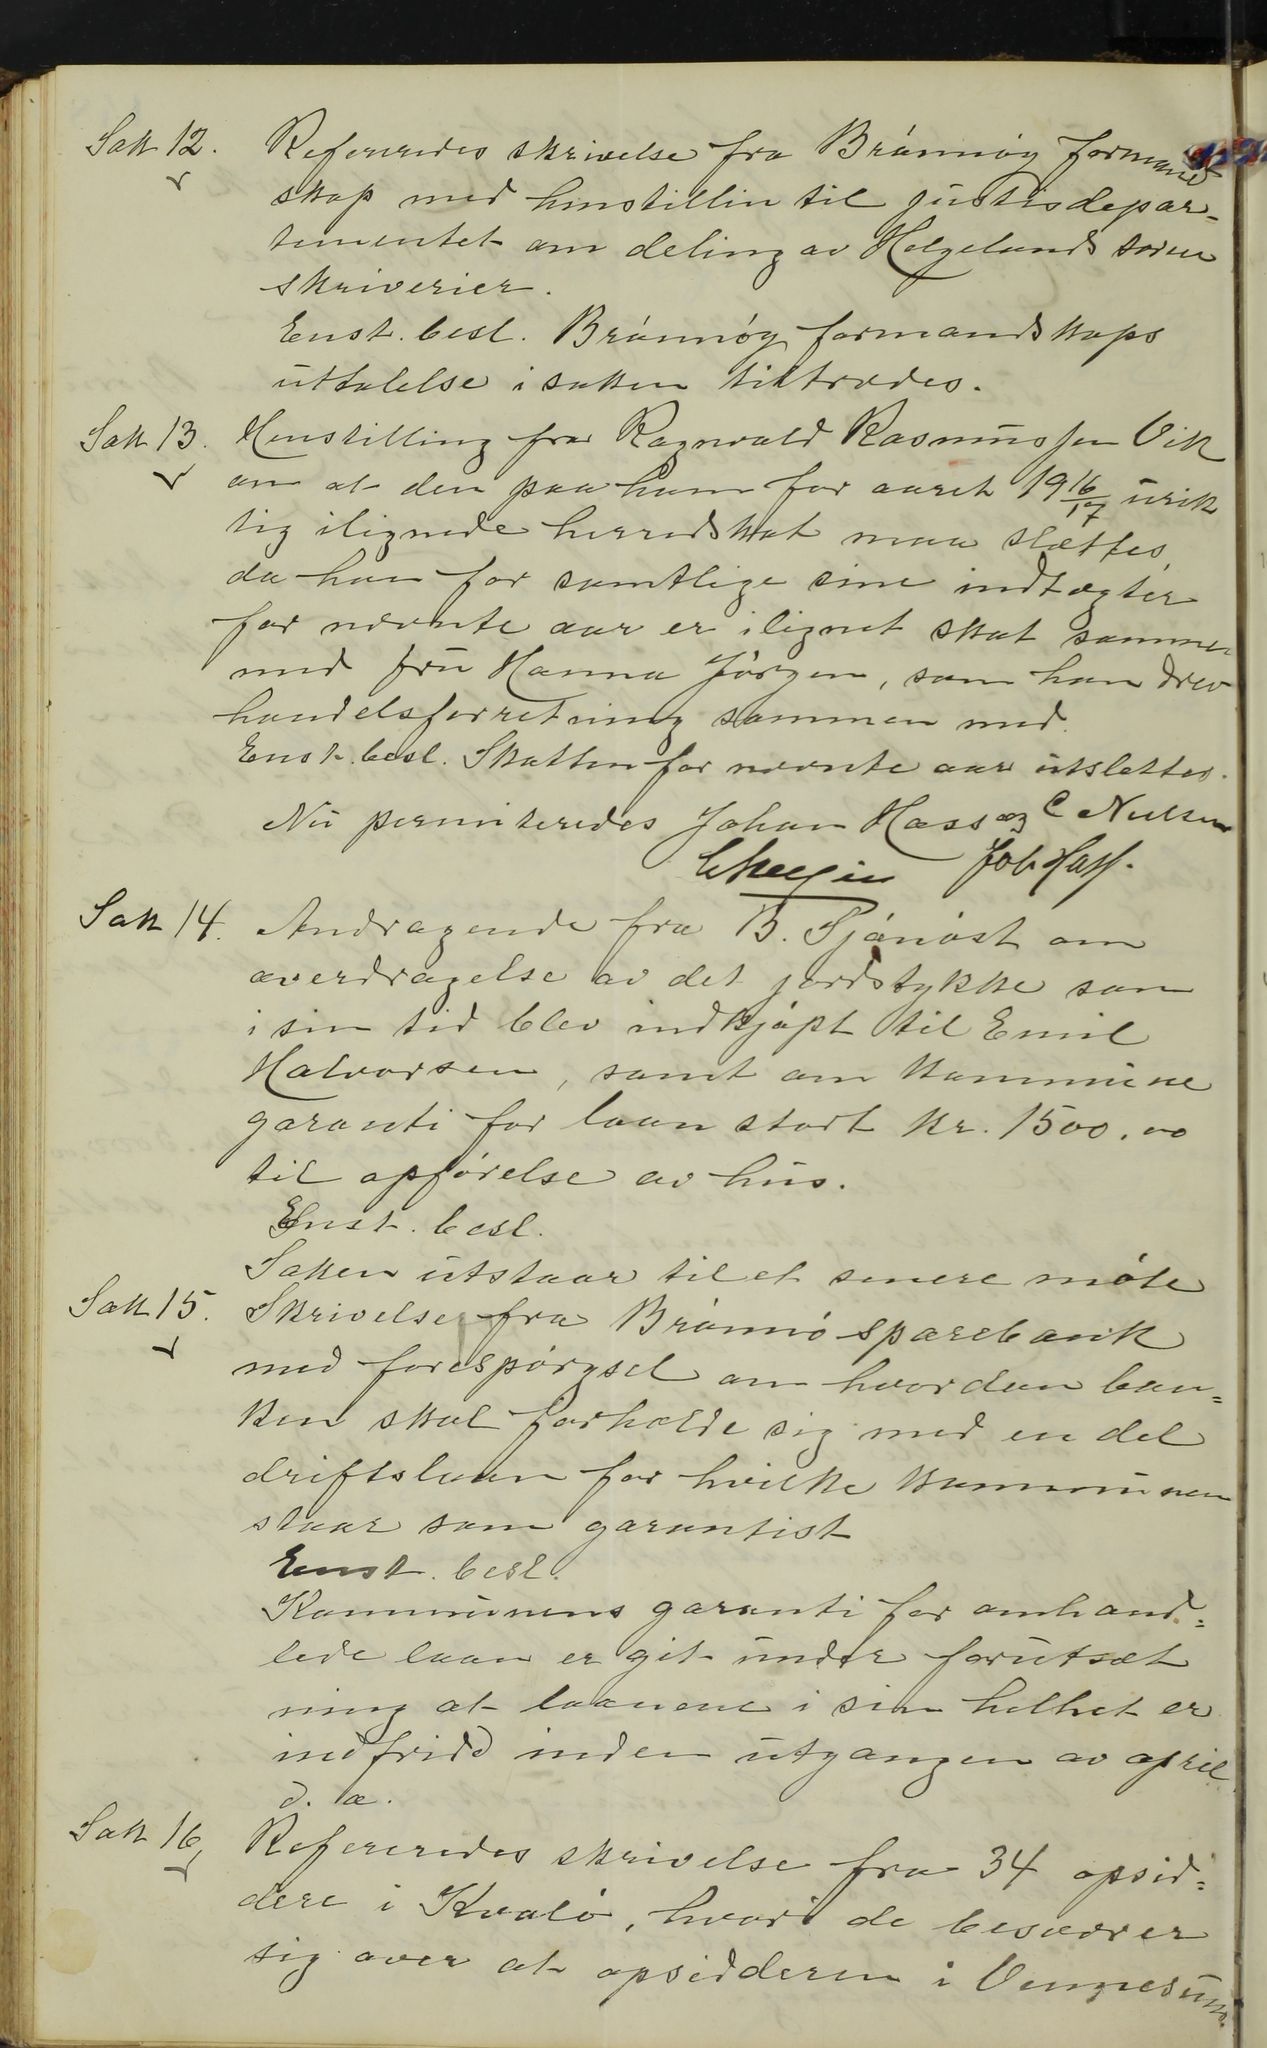 Sak 12. Refereredes skrivelse fra Brønnøy formand
skap med henstillin til justisdepar-
tementet om deling av Helgelands soren
skriverier.
Enst. besl. Brønnøy formandskaps
uttalelse i saken tiltrædes.
Sak 13. Henstilling fra Ragnvald Rasmussen Vik
om at den paa ham for aaret 1916/17 urik
tig ilignede herredskat maa slættes,
da han for samtlige sine indtægter
for nævnte aar er ilignet skat sammen
med fru Hanna Jørgen, som han drev
handelsforretning sammen med.
Enst. besl. Skatten for nævnte aar utslettes.
Nu permiteredes Johan Hass og C Nielsen
Joh Hass.
Sak 14. Andragende fra B. Sjønøst om
averdragelse av det jordstykke som
i sin tid blev indkjøpt til Emil
Halvorsen, samt om kommune
garanti for laan stort kr. 1500.00
til opførelse av hus.
Enst. besl.
Saken utstaar til et senere møte
Sak 15. Skrivelse fra Brønnø sparebank
med forespørgsel om hvordan ban=
ken skal forholde sig med en del
driftslaan for hvilke kommunen
staar som garantist
Enst. besl.
Kommunens garanti for omhand=
lede laan er git under forutsæt
ning at laanene i sin helhet er
indfridd inden utgangen av april
d. a.
Sak 16, Refereredes skrivelse fra 34 opsid=
dere i Kvalø, hvori de besværer
sig over at opsidderen i Vennesund.